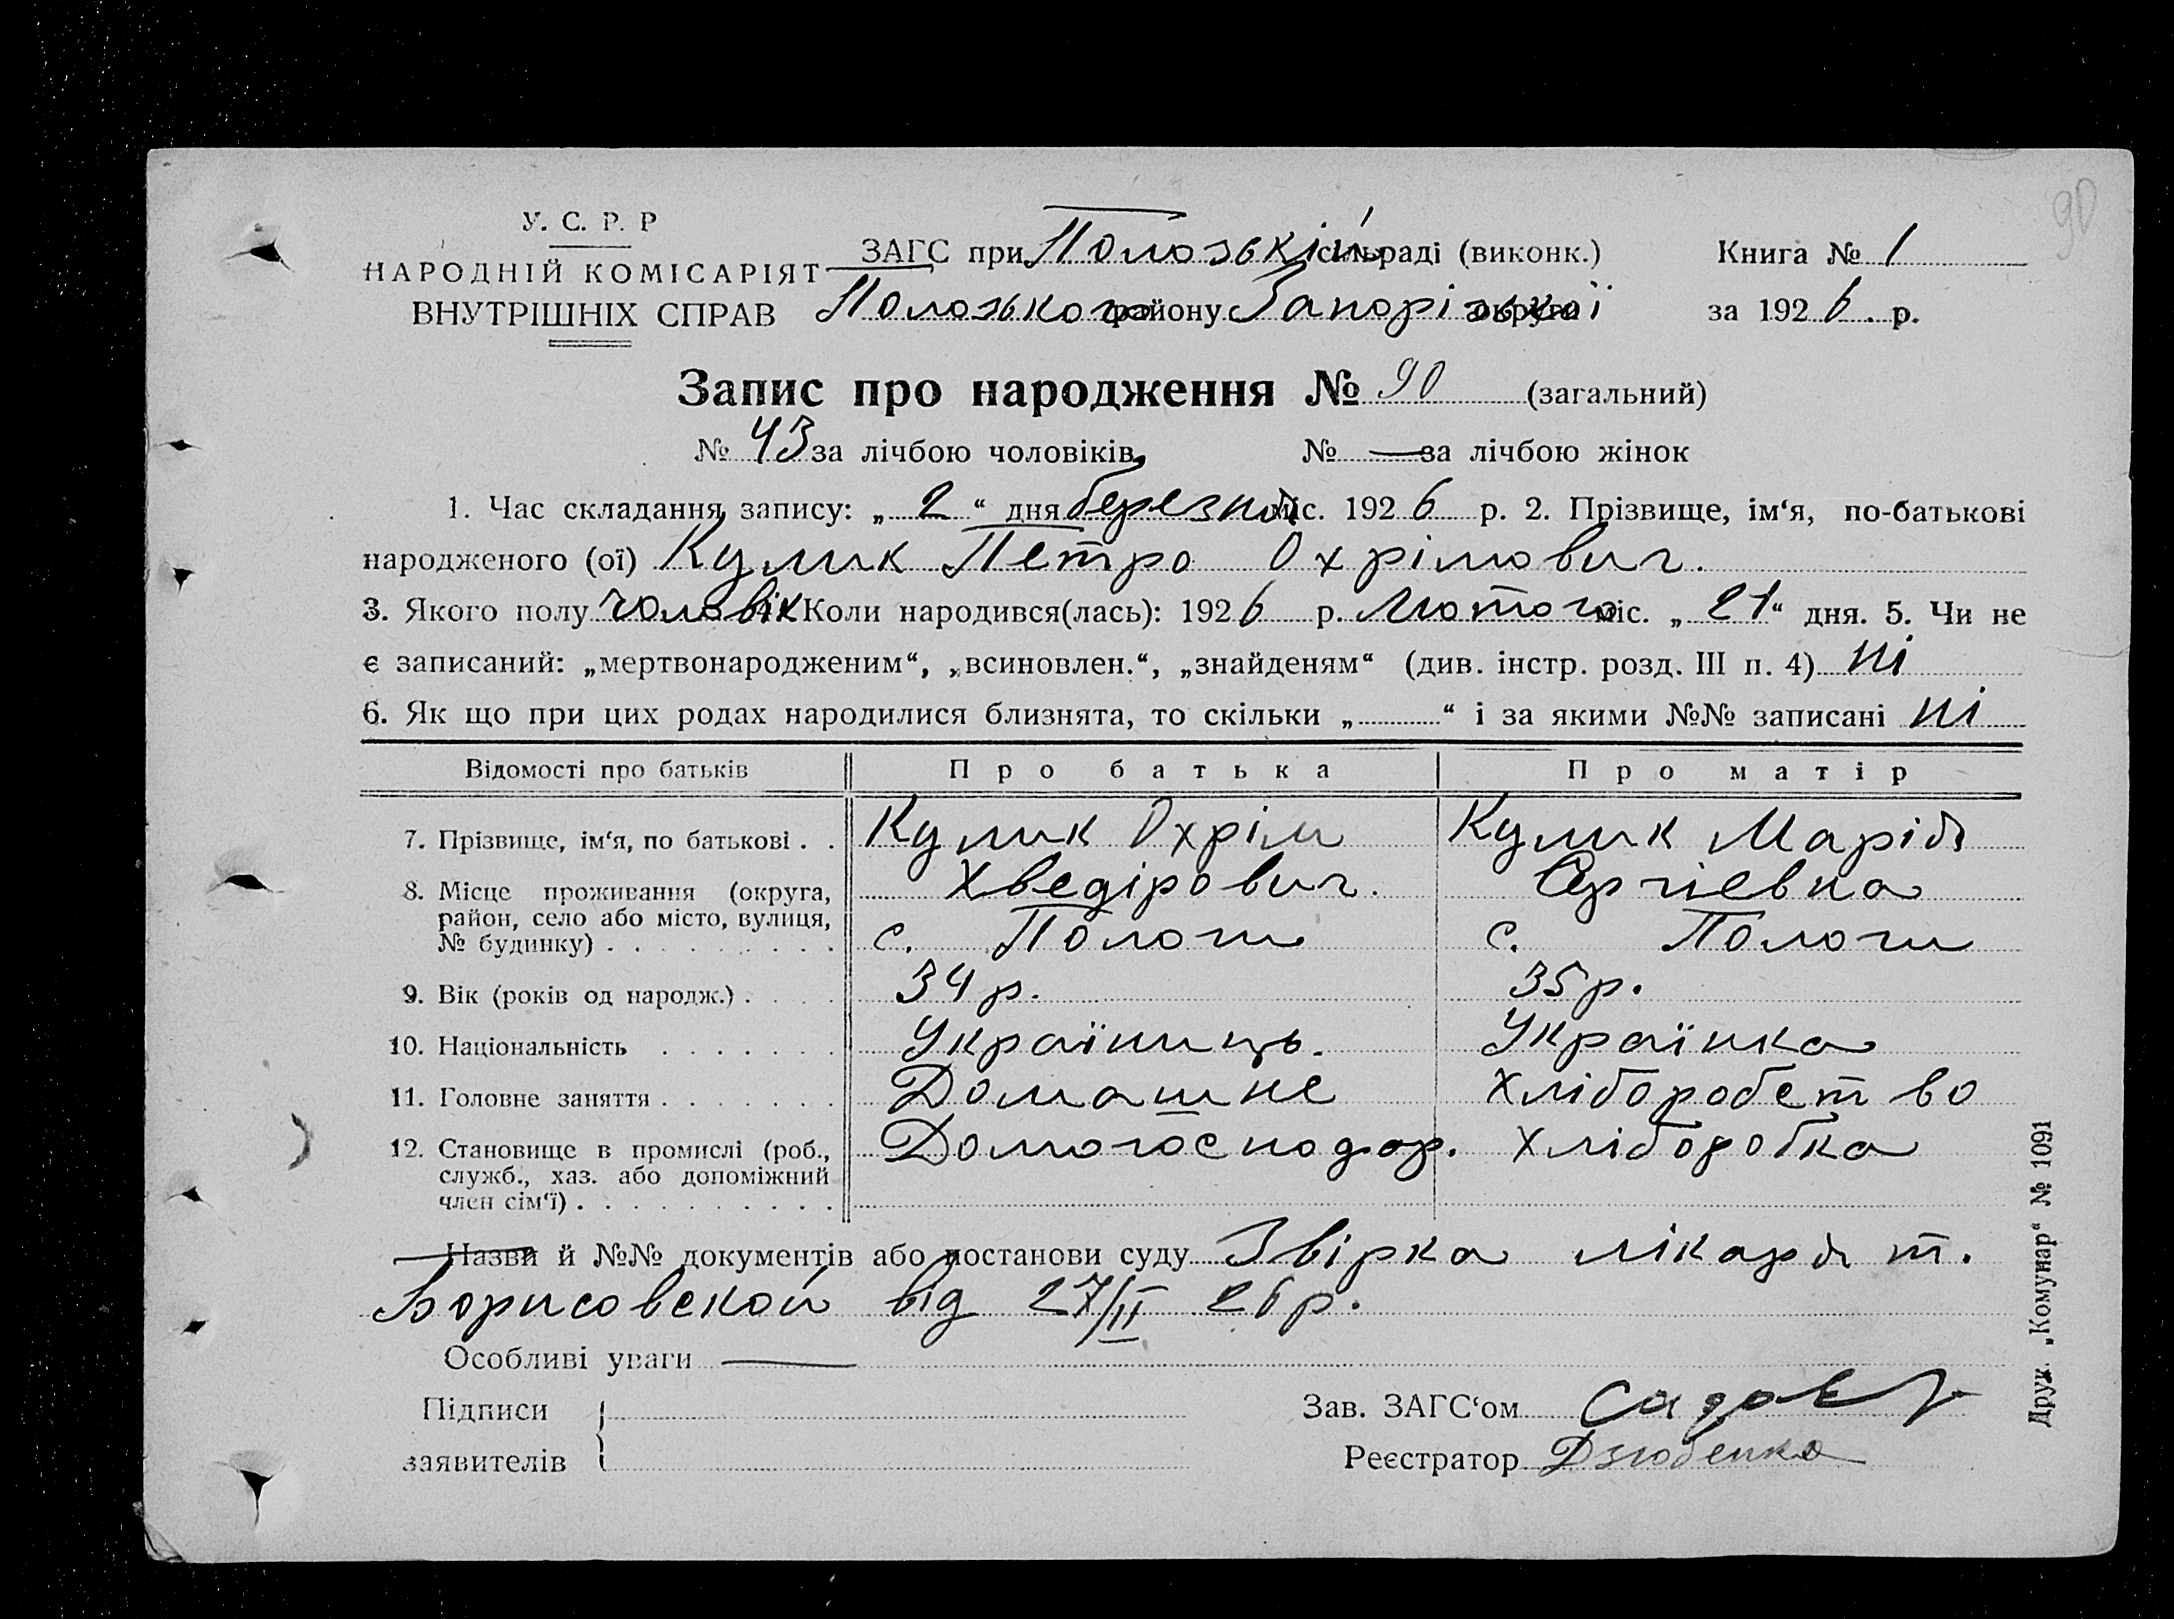 90
У. С. Р. Р
НАРОДНІЙ КОМІСАРІЯТ
ВНУТРІШНІХ СПРАВ
ЗАГС при Полозькій сільраді (виконк.)
Книга № 1
Полозького району Запорізької округи
за 1926 р.
Запис про народження № 90 (загальний)
№ 43 за лічбою чоловіків, № — за лічбою жінок
1. Час складання запису: „ 2 “ дня березня міс. 1926 р. 2. Прізвище, ім‘я, по-батькові
народженого (ої) Кулик Петро Охрімович.
3. Якого полу чоловік 4. Коли народився(лась): 1926 р. Лютого міс. „ 21 “ дня. 5. Чи не
є записаний: „мертвонародженим“, „всиновлен.“, „знайденям“ (див. інстр. розд. III п. 4) ні
6. Як що при цих родах народилися близнята, то скільки „ “ і за якими №№ записані ні
Відомості про батьків Про батька Про матір
7. Прізвище, ім‘я, по батькові . . Кулик Охрім Кулик Марія
8. Місце проживання (округа, Хведірович. Сергієвка
район, село або місто, вулиця,
№ будинку) . . . . . . . . . с. Пологи с. Пологи
9. Вік (років од народж.) . . . . 34 р. 35 р.
10. Національність . . . . . . . Україниць. Українка
11. Головне заняття . . . . . . . Домашнє хліборобство
12. Становище в промислі (роб., Домогосподар. хліборобка
служб., хаз. або допоміжний
член сім‘ї) . . . . . . . . . .
Назви й №№ документів або постанови суду Звірка лікаря т.
Борисовской від 27/II 26 р.
Особливі уваги —
Підписи
заявителів
Зав. ЗАГС‘ом
Реєстратор Дзюбенко
Друк. „Комунар“ № 1091